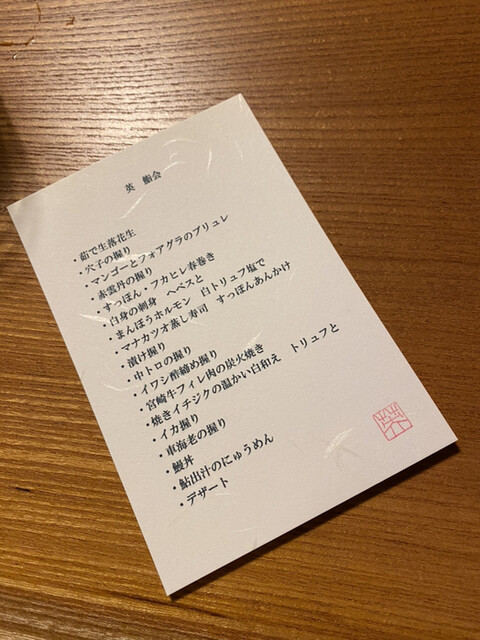 英 鮨会
・茹で生落花生
・穴子の握り
・マンゴーとフォアグラのブリュレ
・赤雲丹の握り
・すっぽん・フカヒレ春巻き
・白身の刺身 へベスと
・まんぼうホルモン 白トリュフ塩で
・マナカツオ蒸し寿司 すっぽんあんかけ
・漬け握り
・中トロの握り
・イワシ酢締め握り
・宮崎牛フィレ肉の炭火焼き
・焼きイチジクの温かい白和え トリュフと
・イカ握り
・車海老の握り
・鰻丼
・鮎出汁のにゅうめん
・デザート